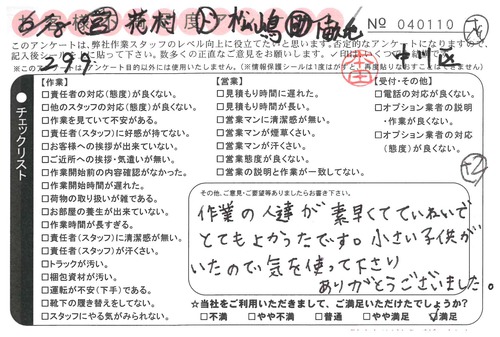 № 040110
このアンケートは、弊社作業スタッフのレベル向上に役立てたいと思います。否定的なアンケートになりますので、
299
【作業】
□責任者の対応(態度)が良くない。
□他のスタッフの対応(態度)が良くない。
□作業を見ていて不安がある。
□責任者(スタッフ)に好感が持てない。
□お客様への挨拶が出来ていない。
□ご近所への挨拶・気遣いが無い。
□作業開始前の内容確認がなかった。
□作業開始時間が遅れた。
□荷物の取り扱いが雑である。
□お部屋の養生が出来ていない。
□作業時間が長すぎる。
□責任者(スタッフ)に清潔感が無い。
□責任者(スタッフ)が汗くさい。
□トラックが汚い。
□梱包資材が汚い。
□運転が不安(下手)である。
□靴下の履き替えをしてない。
□スタッフにやる気がみられない。
【営業】
□見積もり時間に遅れた。
□見積もり時間が長い。
□営業マンに清潔感が無い。
□営業マンが煙草くさい。
□営業マンが汗くさい。
□営業態度が良くない。
□営業の説明と作業が一致してない。
【受付・その他】
□電話の対応が良くない。
□オプション業者の説明
・作業が良くない。
□オプション業者の対応
(態度)が良くない。
チェックリスト
その他、ご意見・ご要望等ありましたらお書き下さい。
作業の人達が素早くてていねいで
とてもよかったです。小さい子供が
いたので気を使って下さり
ありがとうございました。
☆当社をご利用いただきまして、ご満足いただけたでしょうか?
□不満 □やや不満 □普通 □やや満足 □満足